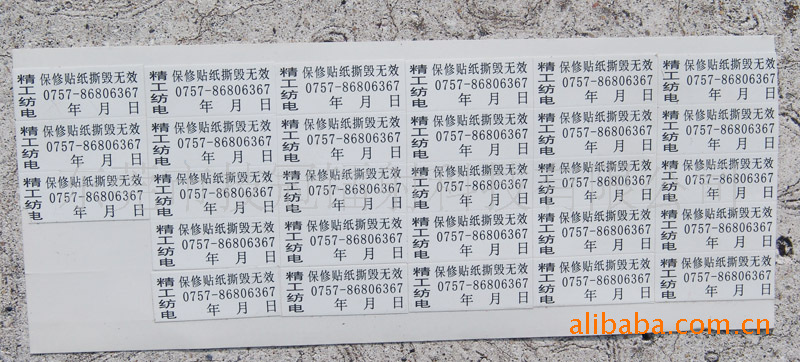 精工纺电
保修贴纸撕毁无效
0757-86806367
年 月 日
精工纺电
保修贴纸撕毁无效
0757-86806367
年 月 日
精工纺电
保修贴纸撕毁无效
0757-86806367
年 月 日
精工纺电
保修贴纸撕毁无效
0757-86806367
年 月 日
精工纺电
保修贴纸撕毁无效
0757-86806367
年 月 日
精工纺电
保修贴纸撕毁无效
0757-86806367
年 月 日
精工纺电
保修贴纸撕毁无效
0757-86806367
年 月 日
精工纺电
保修贴纸撕毁无效
0757-86806367
年 月 日
精工纺电
保修贴纸撕毁无效
0757-86806367
年 月 日
精工纺电
保修贴纸撕毁无效
0757-86806367
年 月 日
精工纺电
保修贴纸撕毁无效
0757-86806367
年 月 日
精工纺电
保修贴纸撕毁无效
0757-86806367
年 月 日
精工纺电
保修贴纸撕毁无效
0757-86806367
年 月 日
精工纺电
保修贴纸撕毁无效
0757-86806367
年 月 日
精工纺电
保修贴纸撕毁无效
0757-86806367
年 月 日
精工纺电
保修贴纸撕毁无效
0757-86806367
年 月 日
精工纺电
保修贴纸撕毁无效
0757-86806367
年 月 日
精工纺电
保修贴纸撕毁无效
0757-86806367
年 月 日
精工纺电
保修贴纸撕毁无效
0757-86806367
年 月 日
精工纺电
保修贴纸撕毁无效
0757-86806367
年 月 日
精工纺电
保修贴纸撕毁无效
0757-86806367
年 月 日
精工纺电
保修贴纸撕毁无效
0757-86806367
年 月 日
精工纺电
保修贴纸撕毁无效
0757-86806367
年 月 日
精工纺电
保修贴纸撕毁无效
0757-86806367
年 月 日
精工纺电
保修贴纸撕毁无效
0757-86806367
年 月 日
精工纺电
保修贴纸撕毁无效
0757-86806367
年 月 日
精工纺电
保修贴纸撕毁无效
0757-86806367
年 月 日
精工纺电
保修贴纸撕毁无效
0757-86806367
年 月 日
alibaba.com.cn